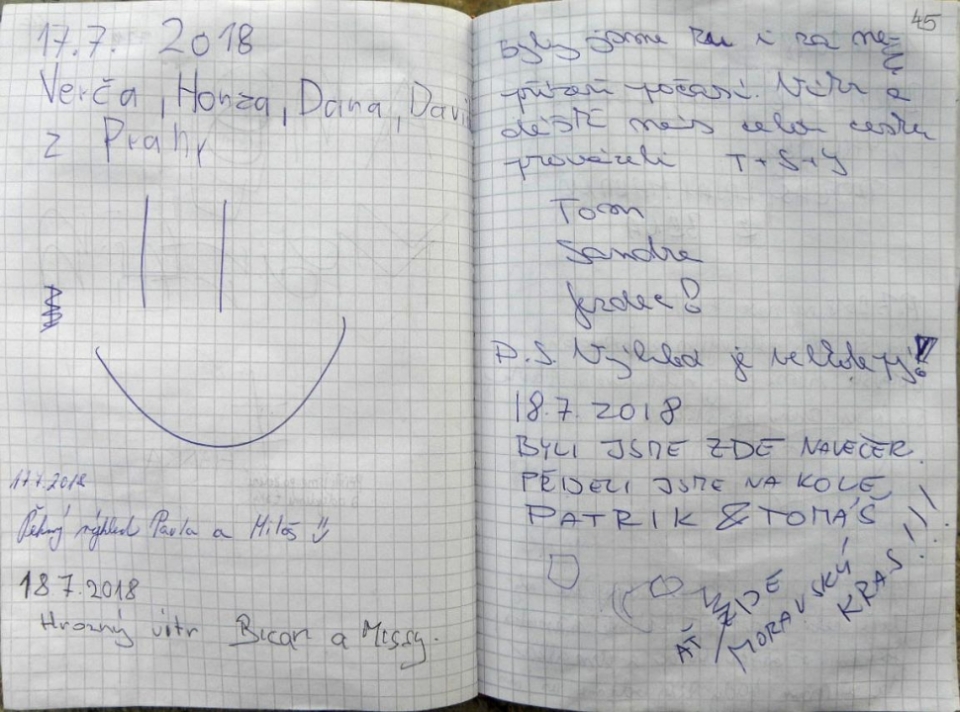 17.7. 2018
Verča, Honza, Dana, Davi
z Prahy
17.7.2018
Pěkný výhled Pavla a Miloš
18 7.2018
Hrozný vítr Bican a Missy.
45
Byly jsme tu i za ne-
přízně počasí. Vítr a
déšť nás celou cestu
provázeli T+S+J
Tom
Sandra
P.S. Výhled je velkolepý!
18.7.2018
BYLI JSME ZDE NAVEČER.
PŘIJELI JSME NA KOLE
PATRIK & TOMÁŠ
AŤ ŽIJE
MORAVSKÝ
KRAS!!!